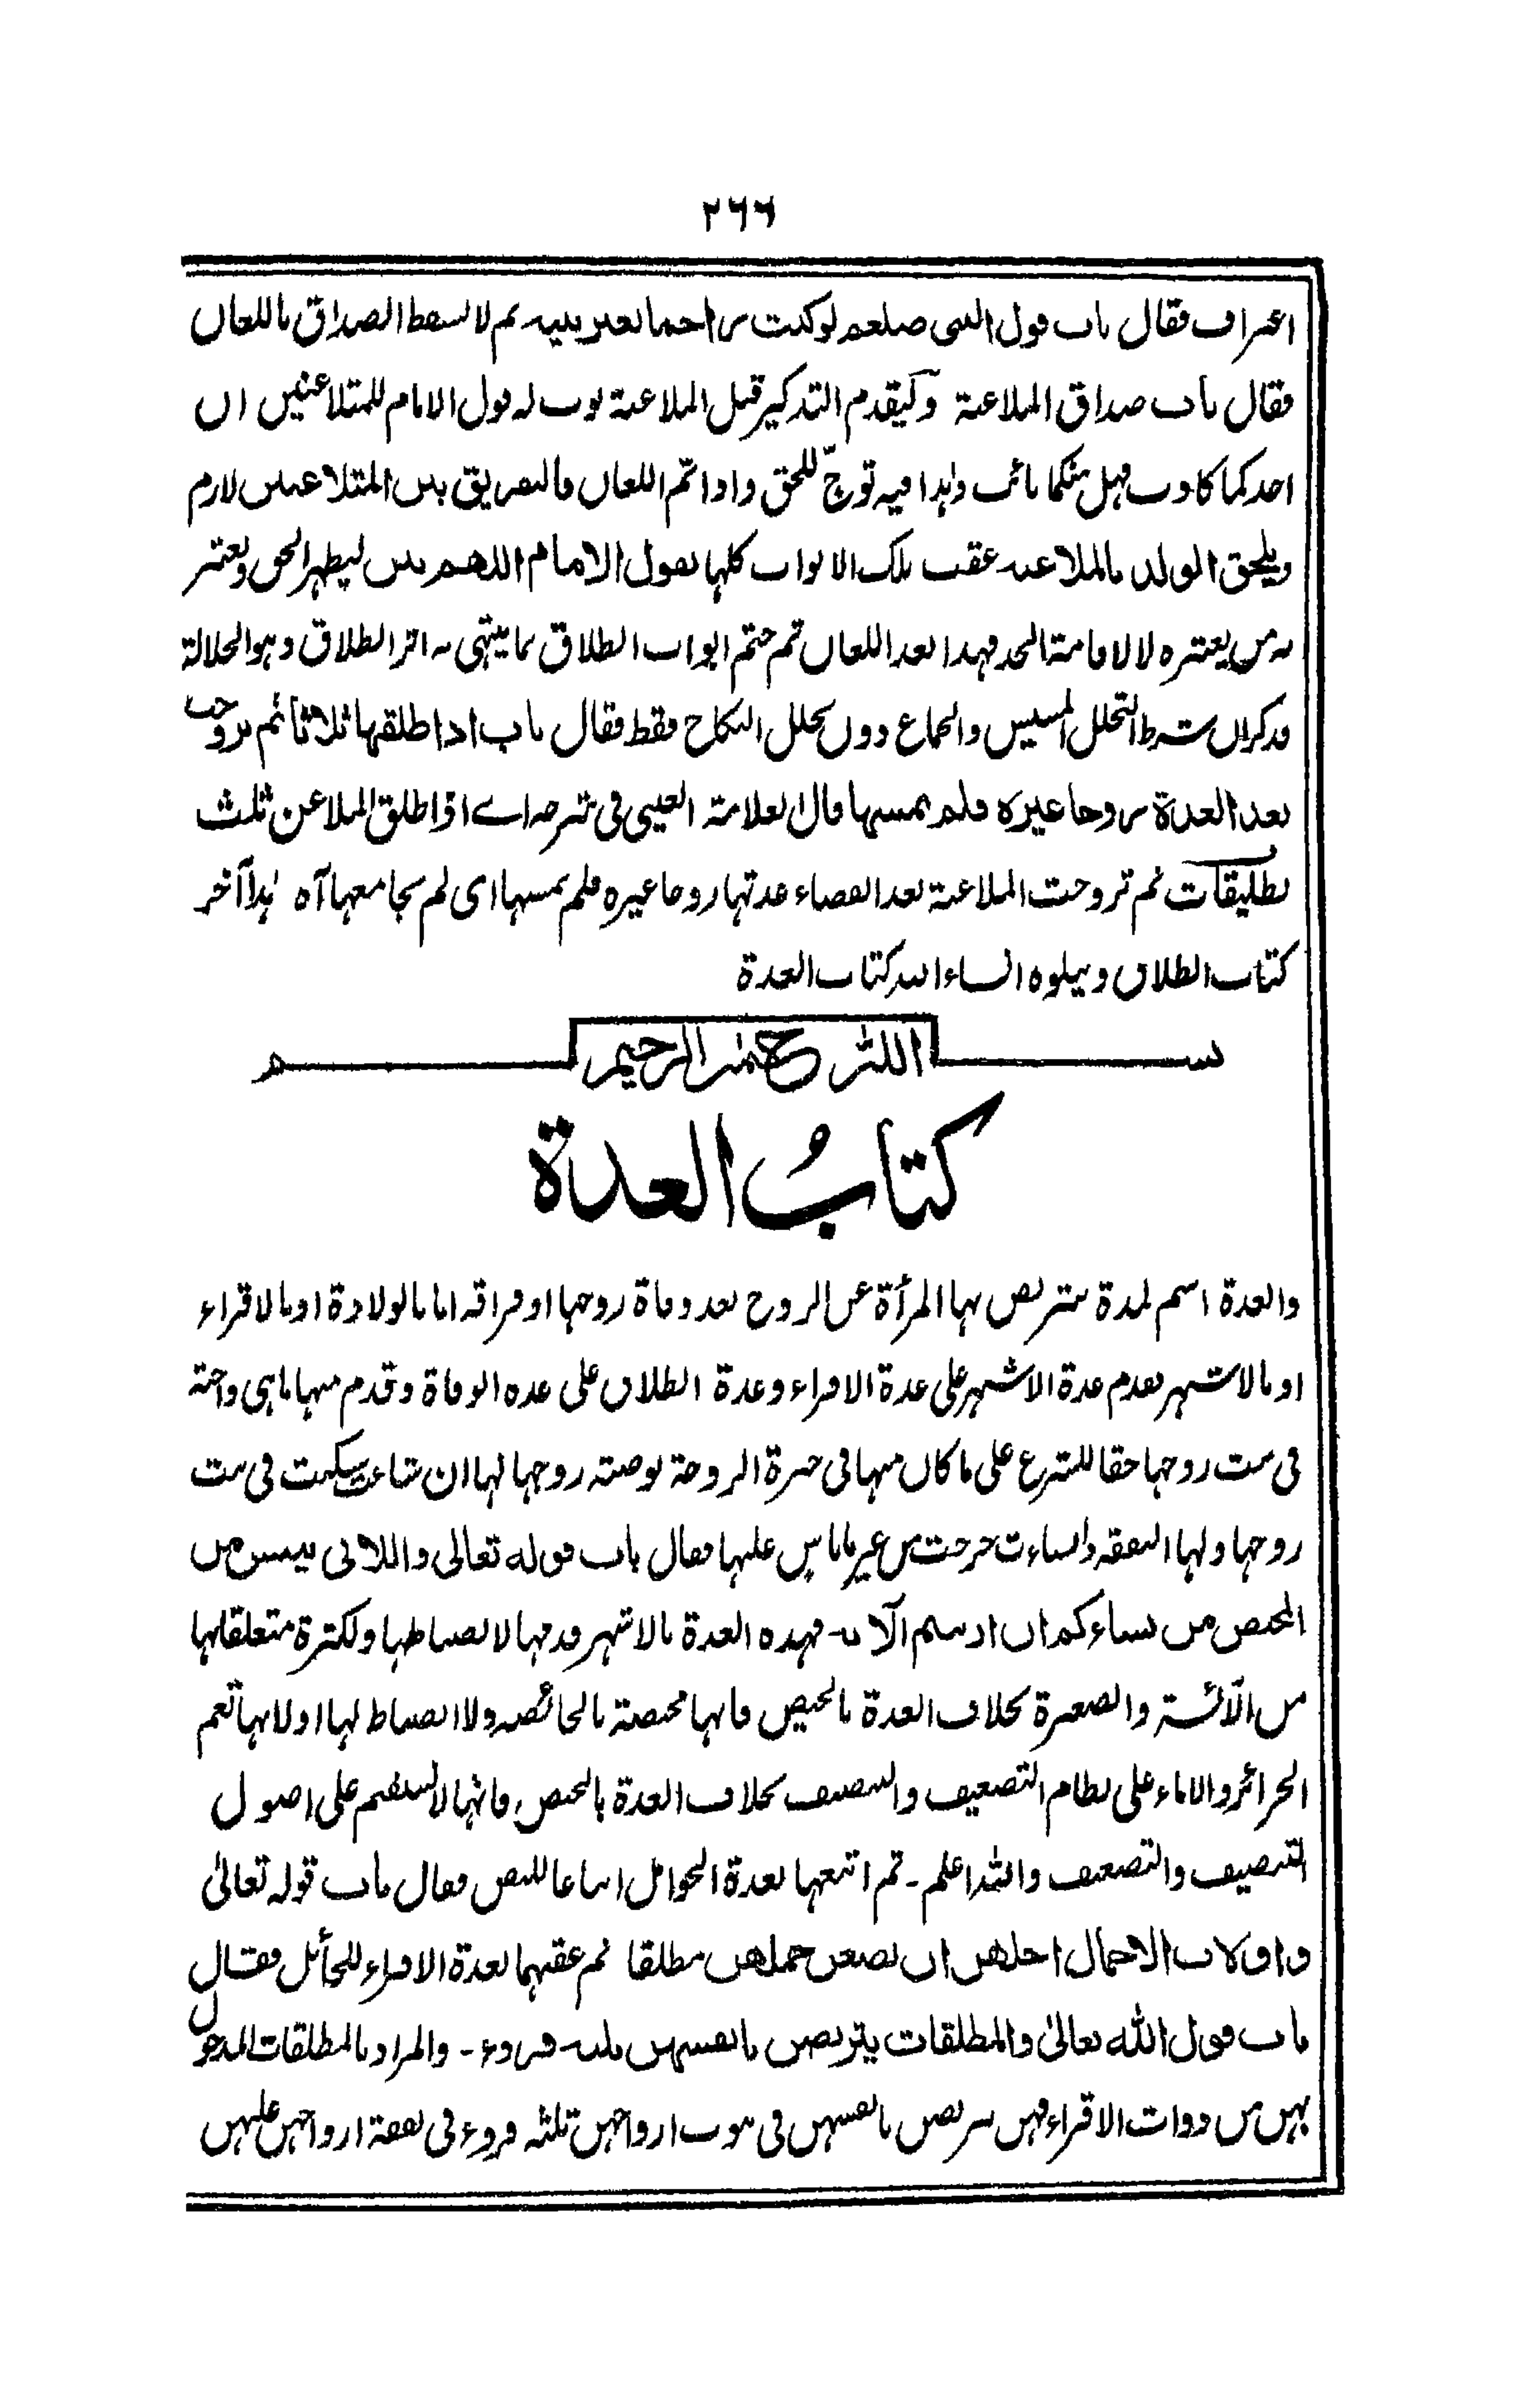 ٢٦٦
اعتراف فقال باب قول النبي صلعم لو كنت راجما بغير بينة ثم لا يسقط الصداق باللعان
فقال باب صداق الملاعنة ويقدم التذكير قبل الملاعنة بوب له قول الامام للمتلاعنين ان
احدكما كاذب فهل منكما تائب وهذا فيه توجّ للحق واذا تم اللعان فالتفريق بين المتلاعنين لازم
ويلحق الولد بالملاعنة عقب تلك الابواب كلها بقول الامام اللهم بين ليظهر الحق ويعتبر
به من يعتبره لا لاقامة الحد فهذا بعد اللعان ثم ختم ابواب الطلاق بما ينتهي به اثر الطلاق وهو الحلالة
وذكر ان شرط التحلل المسيس والجماع دون تحلل النكاح فقط فقال باب اذا طلقها ثلاثا ثم تزوجت
بعد العدة زوجا غيره فلم يمسها قال العلامة العيني في شرحه اے اذا طلق الملاعن ثلث
تطليقات ثم تزوجت الملاعنة بعد انقضاء عدتها زوجا غيره فلم يمسها اى لم يجامعها آه هذا آخر
كتاب الطلاق ويتلوه انشاء الله كتاب العدة
بسم الله الرحمن الرحيم
كتابُ العدة
والعدة اسم لمدة تتربص بها المرأة عن الزوج بعد وفاة زوجها او فراقه اما بالولادة او بالاقراء
او بالاشهر بعدم عدة الاشهر على عدة الاقراء وعدة الطلاق على عدة الوفاة وقدم منها ما هي واجبة
في بيت زوجها حقا للشرع على ما كان منها في خيرة الزوجة بوصية زوجها لها ان شاءت سكنت في بيت
زوجها ولها النفقة وان شاءت خرجت من غير ما باس عليها فقال باب قوله تعالى واللائى يئسن من
المحيض من نساءكم ان ارتبتم الآية فهذه العدة بالاشهر قدمها لانضباطها ولكثرة متعلقاتها
من الآئسة والصغيرة بخلاف العدة بالحيض فانها مختصة بالحائضة ولا انضباط لها اولانها تعم
الحرائر والاماء على نظام التضعيف والتنصيف بخلاف العدة بالحيض فانها لا تستقيم على اصول
التنصيف والتضعيف والله اعلم - ثم اتبعها بعدة الحوامل اتباعا للنص فقال باب قوله تعالىٰ
واولات الاحمال اجلهن ان يضعن حملهن مطلقا ثم عقبهما بعدة الاقراء للحائل فقال
باب قول الله تعالىٰ والمطلقات يتربصن بانفسهن ثلثة قروء - والمراد بالمطلقات المدخول
بهن من ذوات الاقراء فهن يتربصن بانفسهن في بيوت ازواجهن ثلثة قروء في نفقة ازواجهن عليهن